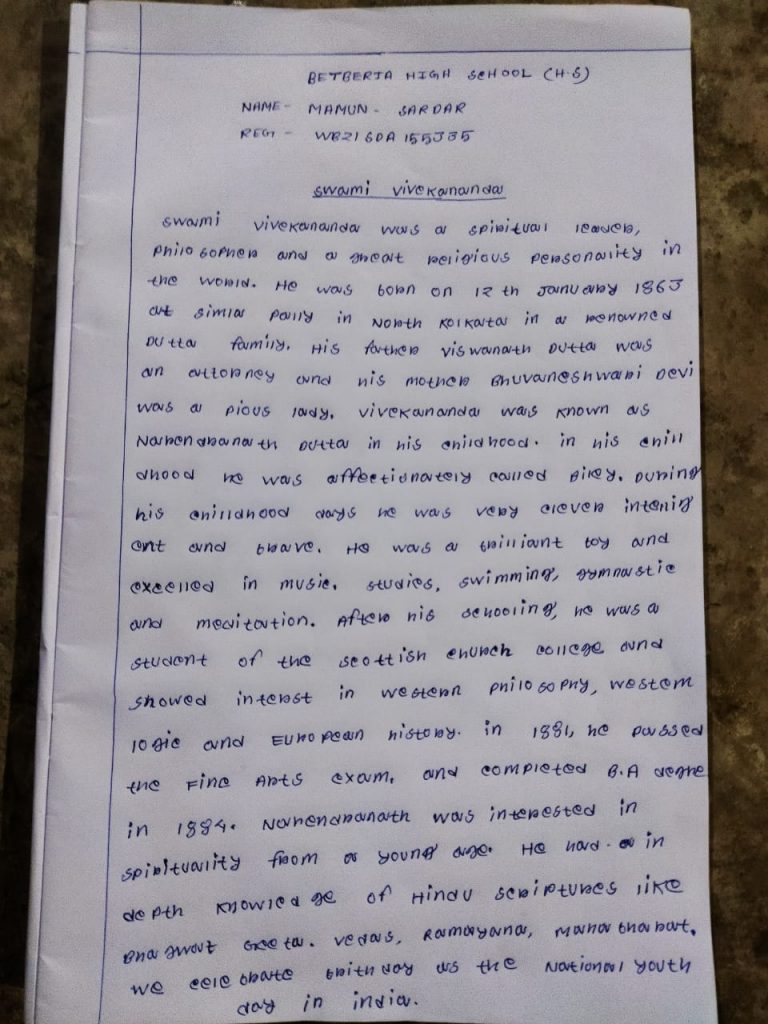 BETBERIA HIGH SCHOOL (H.S)
NAME- MAMUN - SARDAR
REGI - WB21SDA155335
Swami Vivekananda
Swami Vivekananda was a spiritual leader,
Philosopher and a great religious personality in
the world. He was born on 12 th January 1863
at simla pally in North Kolkata in a renowned
Dutta family. His father Viswanath Dutta was
an attorney and his mother Bhuvaneshwari Devi
was a pious lady. Vivekananda was known as
Narendranath Dutta in his childhood. in his chill
dhood he was affectionately called Biley. During
his chilldhood days he was very clever intenlig
ent and brave. He was a brilliant boy and
excelled in music, studies, swimming, gymnastic
and meditation. After his schooling, he was a
student of the scottish church college and
showed interst in western philosophy, western
logic and European history. in 1881, he passed
the Fine Arts exam, and completed B.A degre
in 1884. Narendranath was intersted in
spirituality from a young age. He had in
depth knowledge of Hindu scriptures like
Bhagwat Geeta. vedas, Ramayana, Mahathabat.
we celebrate brithday as the National youth
day in india.